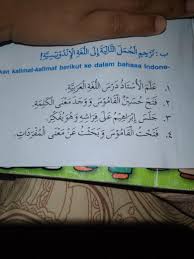 ب: تَرْجِمِ الْجُمَلَ التَّالِيَةَ إِلَى اللُّغَةِ الْإِنْدُونِيسِيَّةِ!
kan kalimat-kalimat berikut ke dalam bahasa Indone-
١. عَلَّمَ الْأُسْتَاذُ دَرْسَ اللُّغَةِ الْعَرَبِيَّةِ.
٢. فَتَحَ حُسَيْنٌ الْقَامُوْسَ وَوَجَدَ مَعْنَى الْكَلِمَةِ.
٣. جَلَسَ إِبْرَاهِيْمُ عَلَى فِرَاشِهِ وَهُوَ يُفَكِّرُ.
٤. فَتَحْتُ الْقَامُوْسَ وَبَحَثْتُ عَنْ مَعْنَى الْمُفْرَدَاتِ.